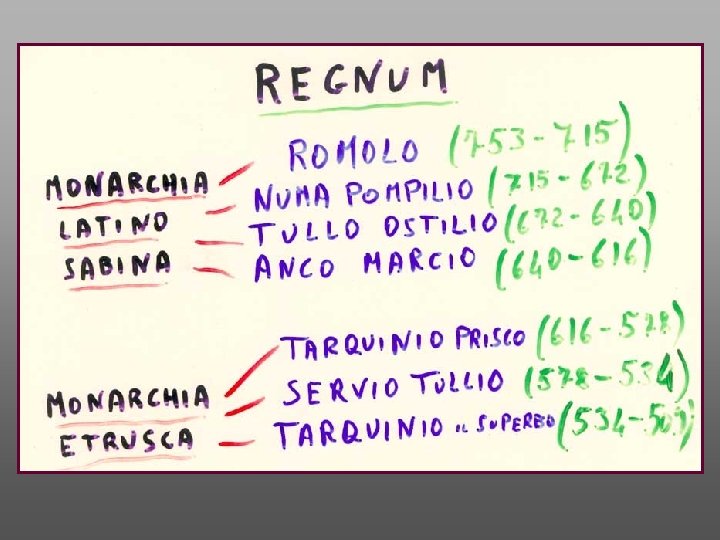 REGNUM
MONARCHIA
LATINO
SABINA
ROMOLO (753-715)
NUMA POMPILIO (715-672)
TULLO OSTILIO (672-640)
ANCO MARCIO (640-616)
MONARCHIA
ETRUSCA
TARQUINIO PRISCO (616-578)
SERVIO TULLIO (578-534)
TARQUINIO IL SUPERBO (534-509)